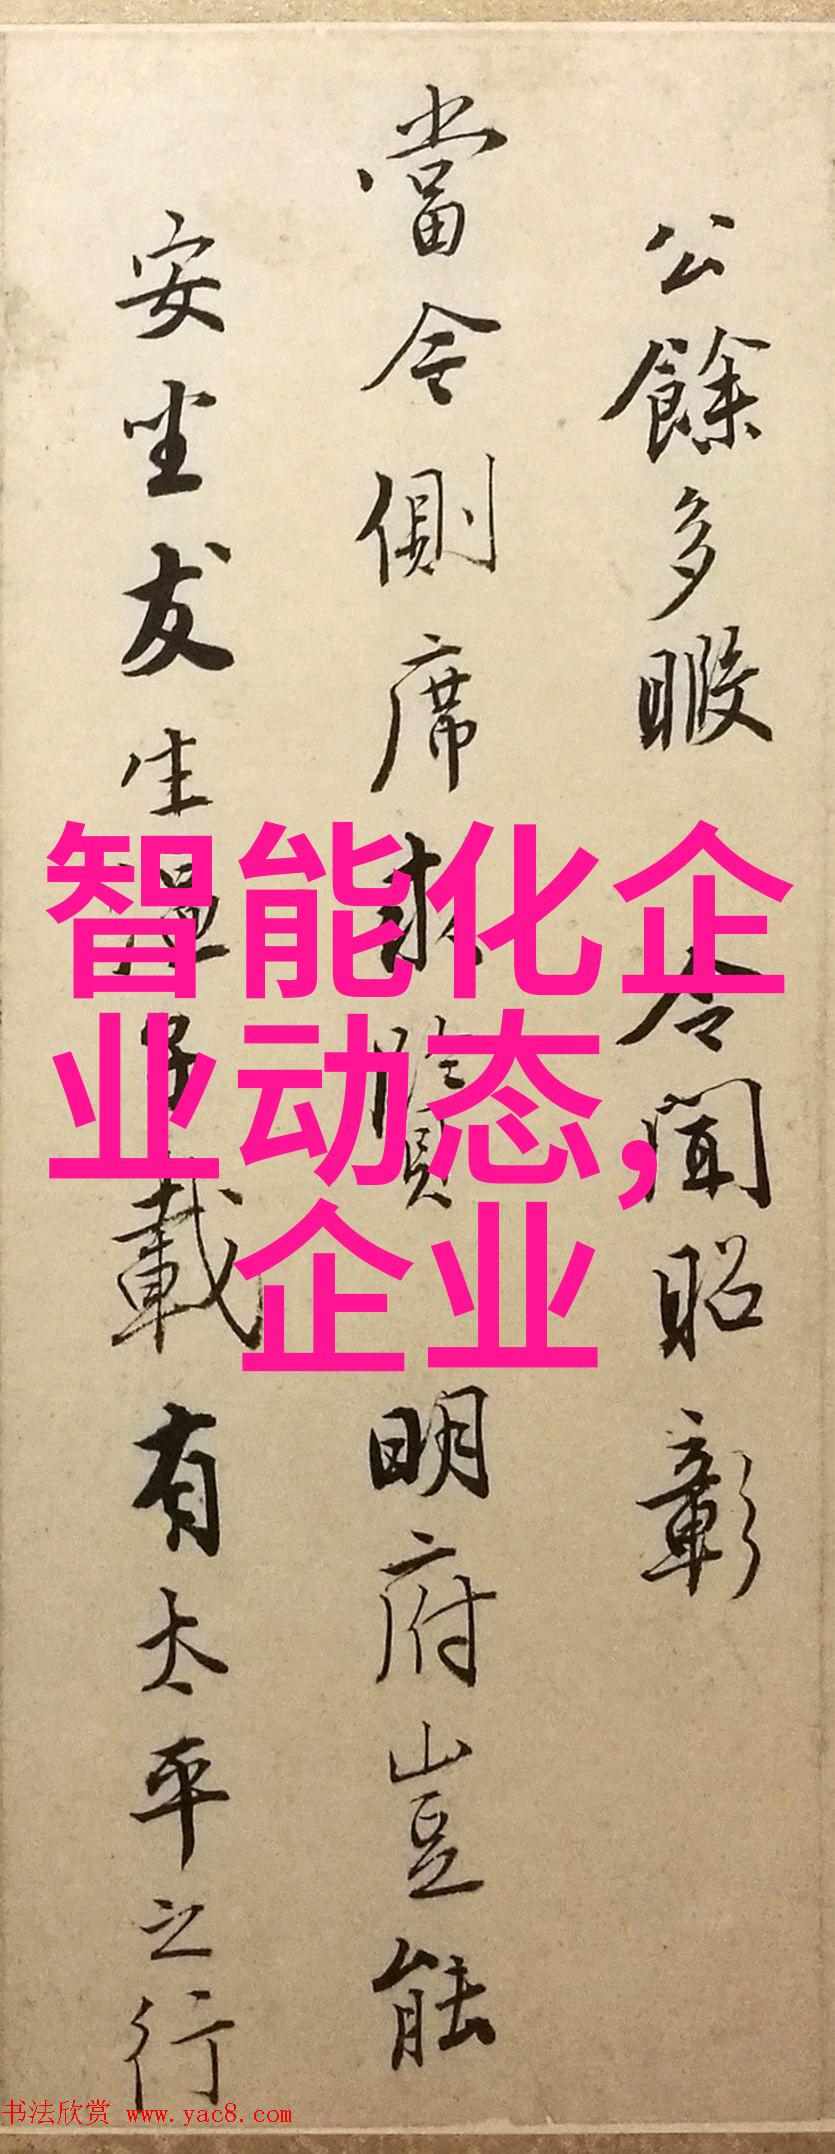 公餘多暇 令聞昭彰
當今側席求
明府豈能
安坐友生
載有太平之行
智能化企
业动态,
企业
书法欣赏 www.yac8.com